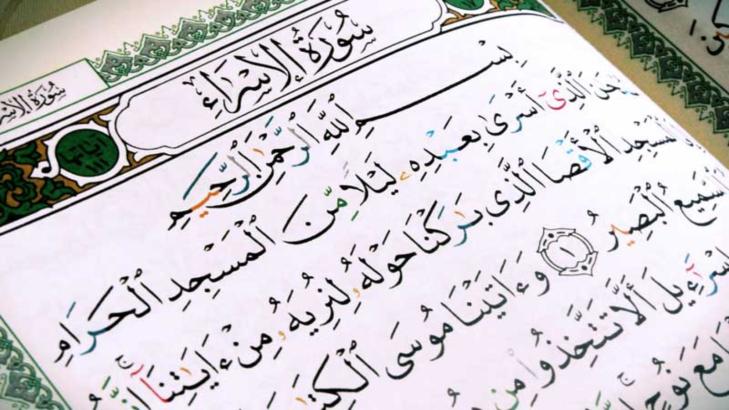 سُورَةُ الإِسْرَاءِ
سُورَةُ الإِسْرَ
بِسْمِ اللَّهِ الرَّحْمَٰنِ الرَّحِيمِ
ٱلَّذِىٓ أَسْرَىٰ بِعَبْدِهِۦ لَيْلًا مِّنَ ٱلْمَسْجِدِ ٱلْحَرَامِ
ٱلْمَسْجِدِ ٱلْأَقْصَا ٱلَّذِى بَٰرَكْنَا حَوْلَهُۥ لِنُرِيَهُۥ مِنْ ءَايَٰتِنَآ ۚ إِنَّهُۥ
ٱلسَّمِيعُ ٱلْبَصِيرُ ١ وَءَاتَيْنَا مُوسَى ٱلْكِتَٰ
إِسْرَٰٓءِيلَ أَلَّا تَتَّخِذُوا۟ مِن
مَعَ نُوحٍ ۚ